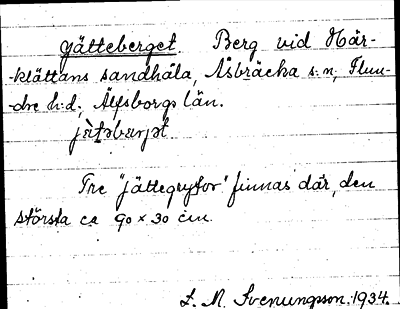 Jätteberget. Berg vid Hår-
-klättans sandhåla, Åsbräcka s:n, Flun-
-dre h:d, Älfsborgs län.
jä̀təbærjət
Tre "jättegrytor" finnas där, den
största ca 90 x 30 cm.
L. M. Svenungsson. 1934.